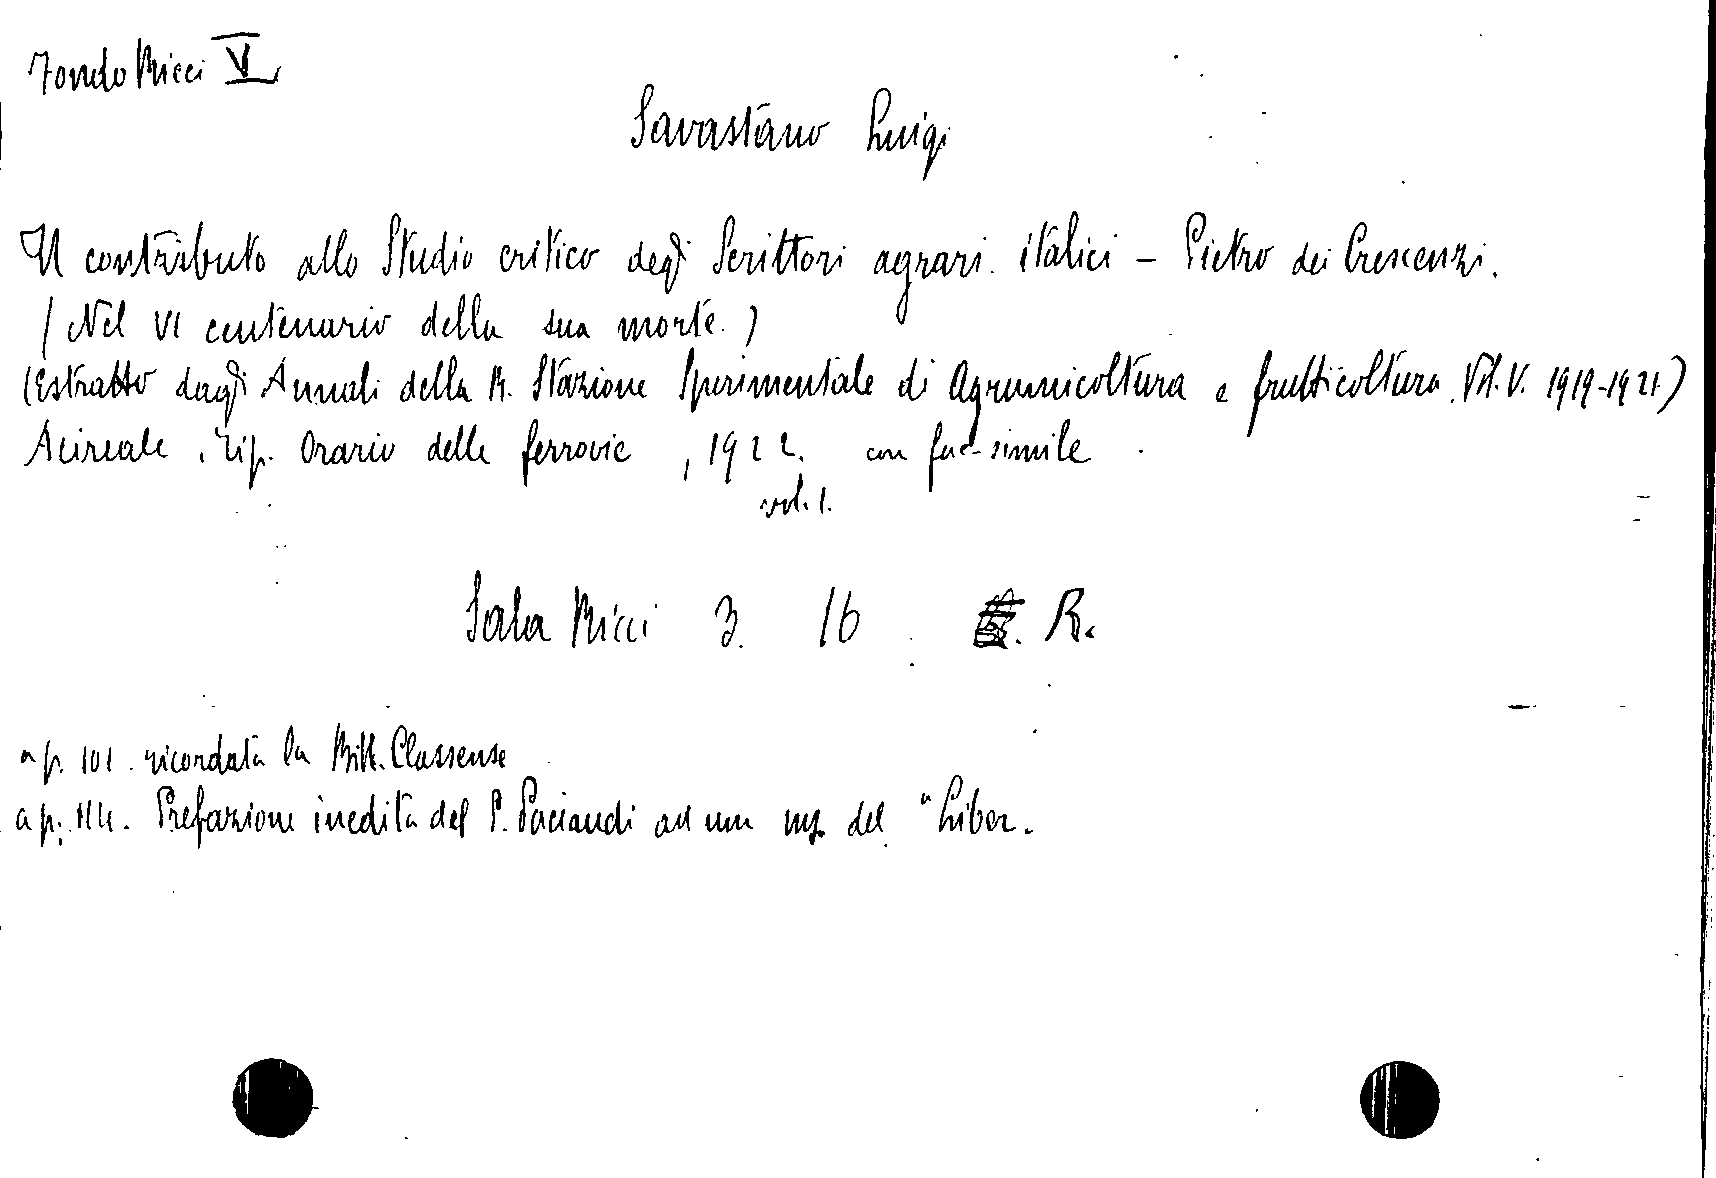 Fondo Ricci V
Savastano Luigi
Il contributo allo Studio critico degli Scrittori agrari italici – Pietro dei Crescenzi.
(Nel VI centenario della sua morte.)
(Estratto dagli Annali della R. Stazione Sperimentale di Agrumicoltura e frutticoltura. Vol. V. 1919-1921)
Acireale, Tip. Orario delle ferrovie, 1922. con fac-simile
vol. 1.
Sala Ricci 3. 16 R.
a p. 101. ricordata la Bibl. Classense
a p. 114. Prefazione inedita del P. Paciaudi ad un ms. del "Liber.